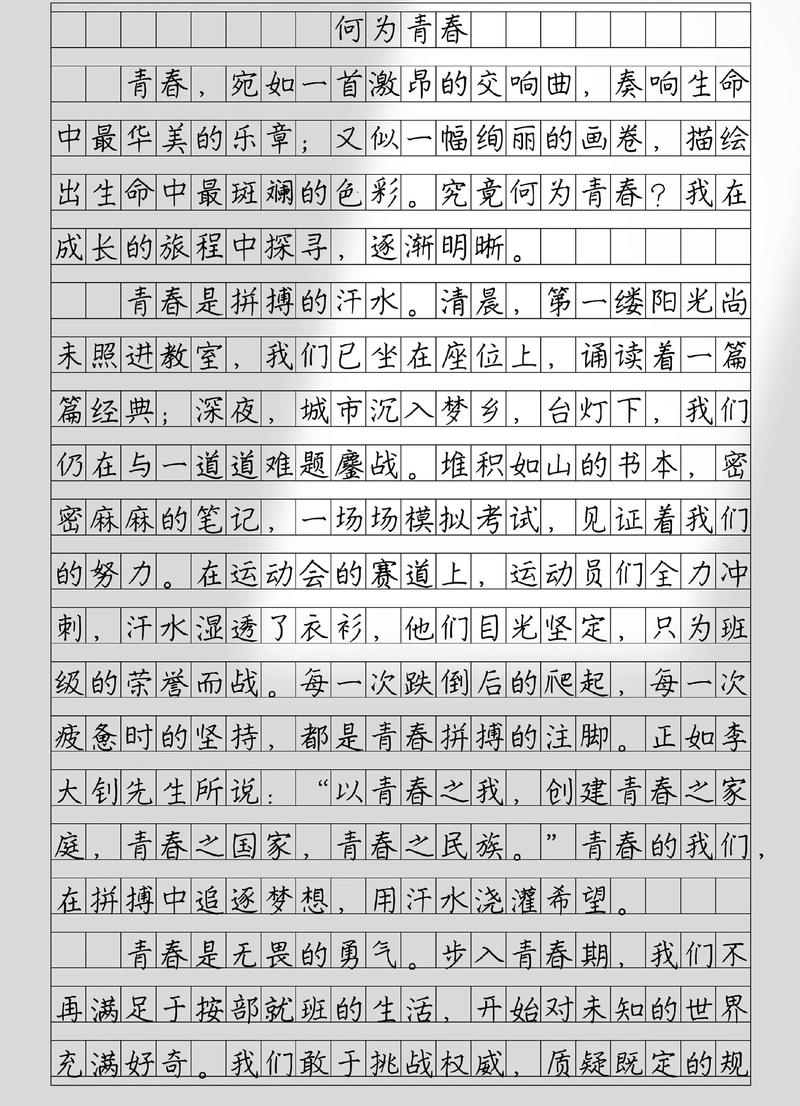 何为青春
青春，宛如一首激昂的交响曲，奏响生命
中最华美的乐章；又似一幅绚丽的画卷，描绘
出生命中最斑斓的色彩。究竟何为青春？我在
成长的旅程中探寻，逐渐明晰。
青春是拼搏的汗水。清晨，第一缕阳光尚
未照进教室，我们已坐在座位上，诵读着一篇
篇经典；深夜，城市沉入梦乡，台灯下，我们
仍在与一道道难题鏖战。堆积如山的书本，密
密麻麻的笔记，一场场模拟考试，见证着我们
的努力。在运动会的赛道上，运动员们全力冲
刺，汗水湿透了衣衫，他们目光坚定，只为班
级的荣誉而战。每一次跌倒后的爬起，每一次
疲惫时的坚持，都是青春拼搏的注脚。正如李
大钊先生所说：“以青春之我，创建青春之家
庭，青春之国家，青春之民族。”青春的我们，
在拼搏中追逐梦想，用汗水浇灌希望。
青春是无畏的勇气。步入青春期，我们不
再满足于按部就班的生活，开始对未知的世界
充满好奇。我们敢于挑战权威，质疑既定的规